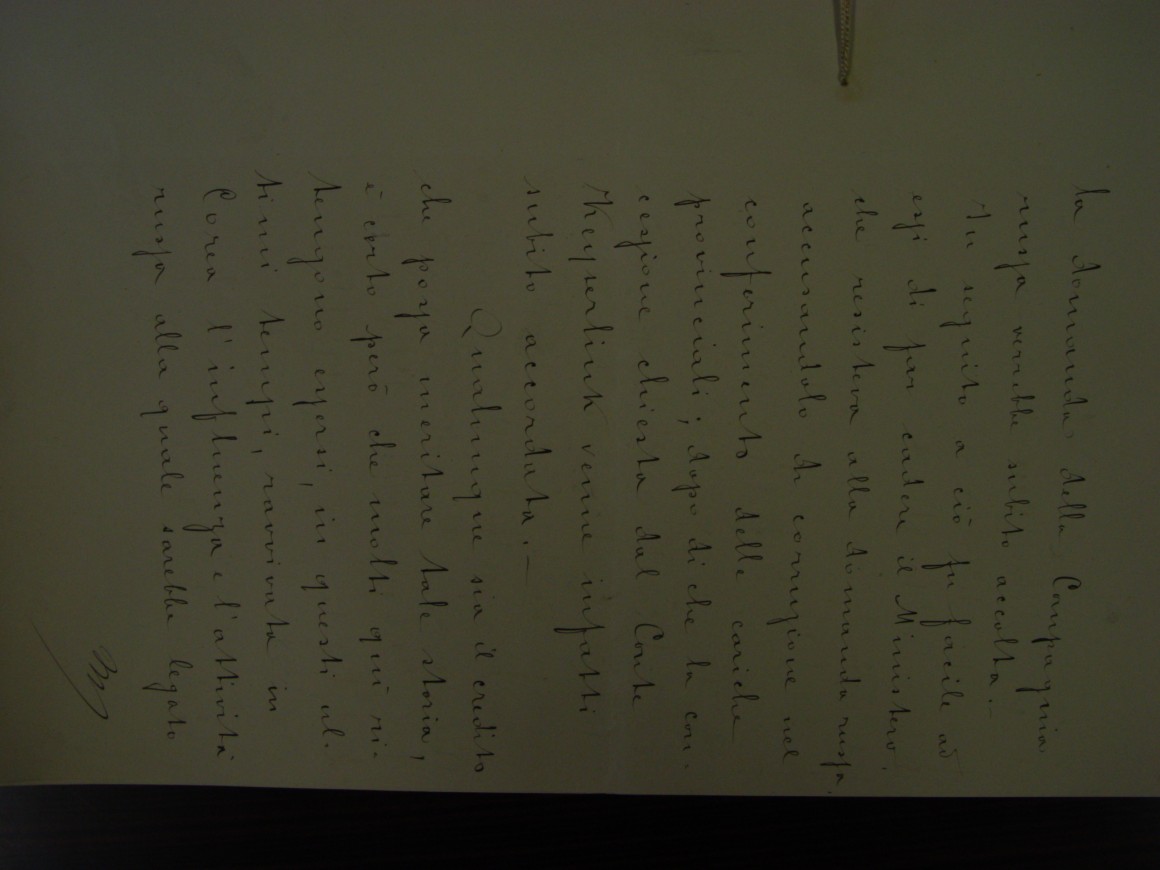 la domanda della Compagnia
russa verrebbe subito accolta.—
In seguito a ciò fu facile ad
essi di far cadere il Ministero,
che resisteva alla domanda russa,
accusandolo di corruzione nel
conferimento delle cariche
provinciali; dopo di che la con-
cessione chiesta dal Conte
Keyserlink venne infatti
subito accordata.—
Qualunque sia il credito
che possa meritare tale storia,
è certo però che molti quì ri-
tengono essersi, in questi ul-
timi tempi, ravvivata in
Corea l'influenza e l'attività
russa alla quale sarebbe legato